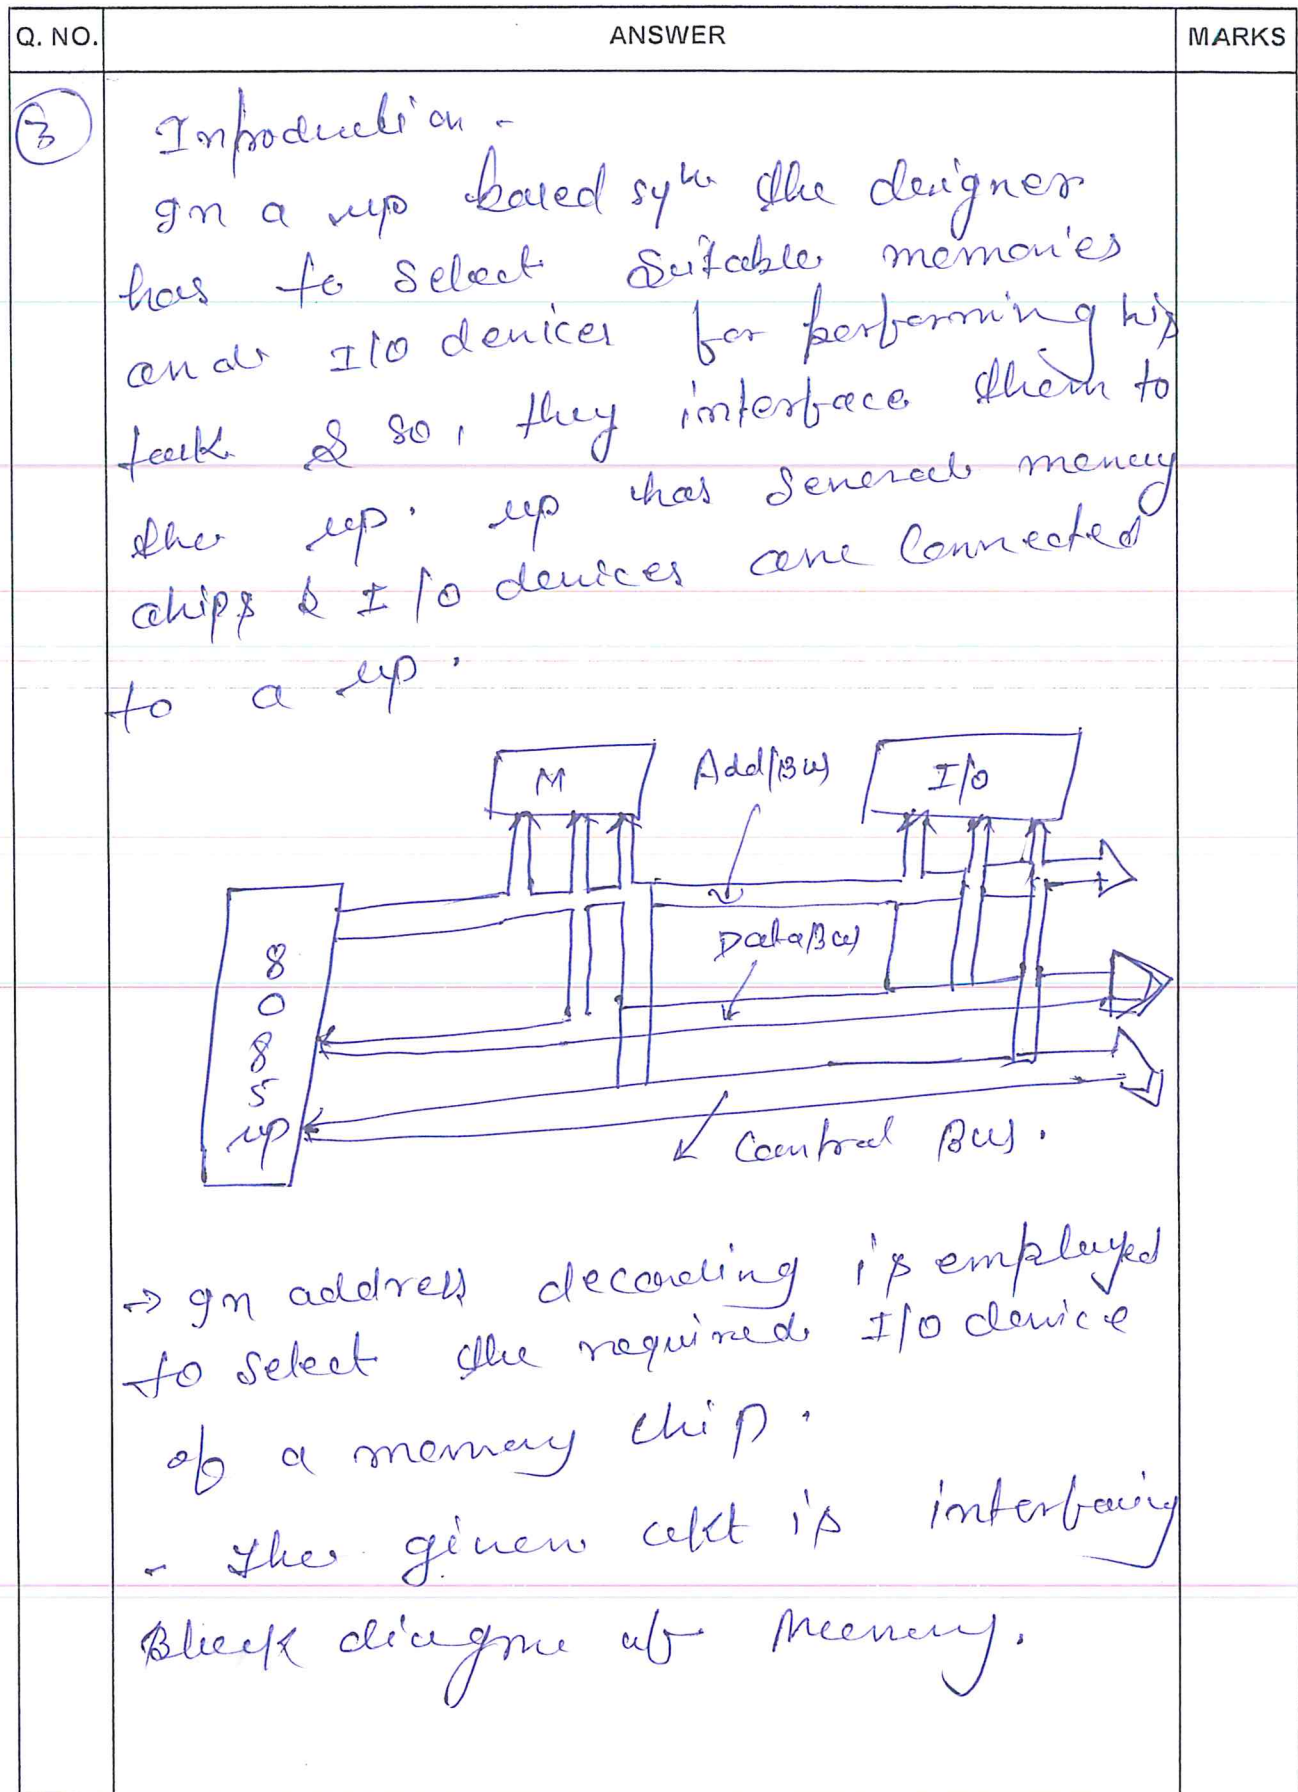 Q. NO. ANSWER MARKS
3 Introduction -
In a up based sym the designer
has to select suitable memories
and I/O devices for performing his
task & so, they interface them to
the up. up has several memory
chips & I/O devices are connected
to a up.
M Add/Bus I/O
Data/Bus
8
0
8
5
up
Control Bus.
→ In address decoding is employed
to select the required I/O device
of a memory chip.
- The given cekt is interfacing
Block diagrme of Memory.